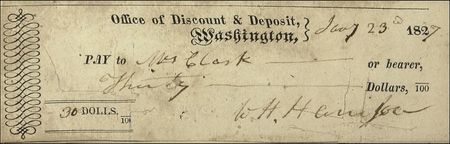 Office of Discount & Deposit,
Washington, Jany 23d 1827
PAY to Mrs Clark or bearer,
Thirty Dollars, /100
30 DOLLS, /100
W. H. Harrison